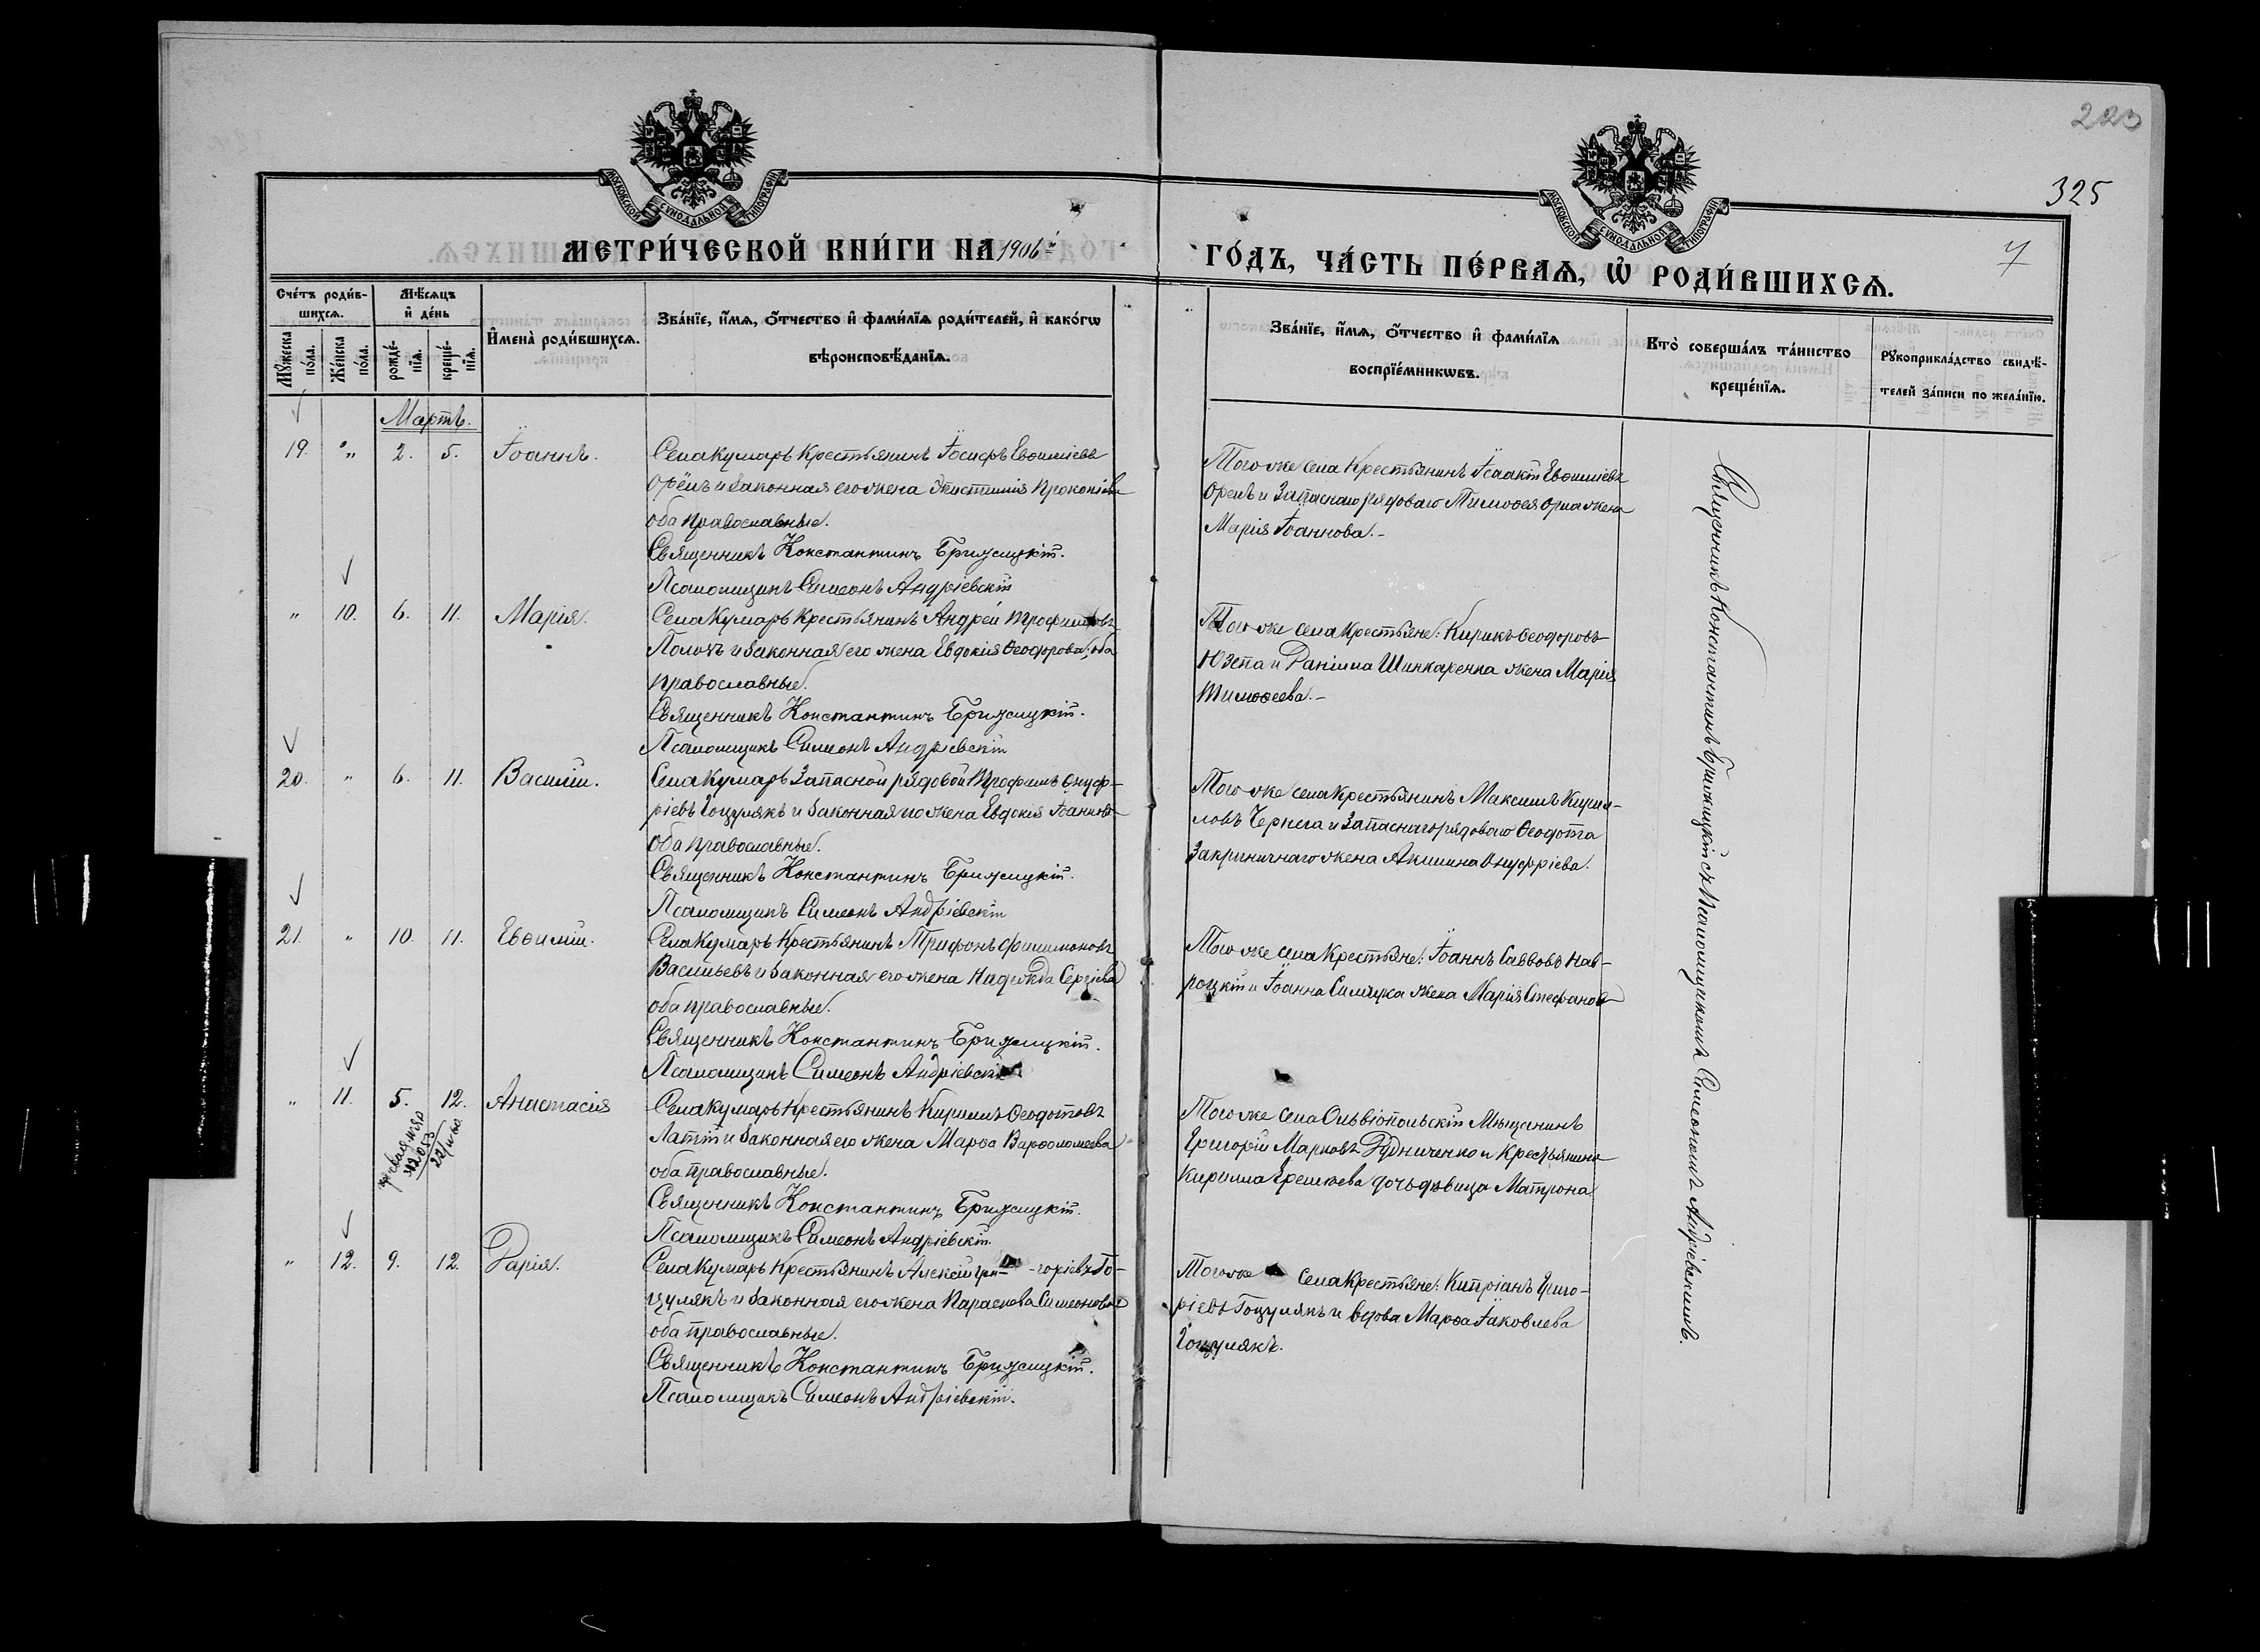 223
325
7
МОСКОВСКОЙ СУНОДАЛЬНОЙ ТИПОГРАФІИ
МОСКОВСКОЙ СУНОДАЛЬНОЙ ТИПОГРАФІИ
МЕТРИ́ЧЕСКОЙ КНИ́ГИ НА 1906й
ГО́ДЪ, ЧА́СТЬ ПЕ́РВАѦ, Ѡ РОДИ́ВШИХСѦ.
Сче́тъ роди́в-
шихсѧ.
Мꙋ́жеска по́ла.
Же́нска по́ла.
Мѣ́сѧцъ
и҆ де́нь
рожде́-
нїѧ.
креще́-
нїѧ.
И҆мена̀ роди́вшихсѧ.
Зва́нїе, и҆́мѧ, ѻ҆́тчество и҆ фами́лїѧ роди́телей, и҆ како́гѡ
вѣроисповѣ́данїѧ.
Зва́нїе, и҆́мѧ, ѻ҆́тчество и҆ фами́лїѧ
воспрїе́мникѡвъ.
Кто̀ соверша́лъ та́инство
креще́нїѧ.
Рꙋкоприкла́дство свидѣ́-
телей за́писи по жела́нїю.
Мартъ.
19. " 2. 5. Іоаннъ.
Села Кумаръ Крестьянинъ Іосифъ Евѳиміевъ
Орелъ и законная его жена Ѳистинія Прокопіева
оба православные.
Священникъ Константинъ Брижицкій.
Псаломщикъ Симеонъ Андріевскій
Того же села Крестьянинъ Исаакій Евѳиміевъ
Орелъ и Запаснаго рядоваго Тимоѳея Орла жена
Марія Іоаннова.-
" 10. 6. 11. Марія.
Села Кумаръ Крестьянинъ Андрей Трофимовъ
Полохъ и законная его жена Евдокія Ѳеодорова, оба
православные.
Священникъ Константинъ Брижицкій.
Псаломщикъ Симеонъ Андріевскій
Того же села Крестьяне: Кирикъ Ѳеодоровъ
Юзепа и Даніила Шинкаренка жена Марія
Тимоѳеева.-
20. " 6. 11. Василій.
Села Кумаръ Запасной рядовой Трофимъ Онуф-
ріевъ Гоцулякъ и законная его жена Евдокія Іоаннова
оба православные.
Священникъ Константинъ Брижицкій.
Псаломщикъ Симеонъ Андріевскій
Того же села Крестьянинъ Максимъ Кирил-
ловъ Чернега и Запаснаго рядоваго Ѳеодота
Закриничнаго жена Акилина Онуфріева.
21. " 10. 11. Евѳимій.
Села Кумаръ Крестьянинъ Трифонъ Филимоновъ
Васильевъ и законная его жена Надежда Сергіева
оба православные.
Священникъ Константинъ Брижицкій.
Псаломщикъ Симеонъ Андріевскій.
Того же села Крестьяне: Іоаннъ Савовъ Нав-
роцкій и Іоанна жена Марія Стефанова
" 11. 5. 12. Анастасія
42053
22/
Села Кумаръ Крестьянинъ Кириллъ Ѳеодотовъ
Латій и законная его жена Марѳа Варѳоломеева
оба православные.
Священникъ Константинъ Брижицкій.
Псаломщикъ Симеонъ Андріевскій.
Того же села Ольвіопольскій Мѣщанинъ
Григорій Марковъ Рудниченко и Крестьянина
Кирилла дочь дѣвица Матрона.
" 12. 9. 12. Дарія.
Села Кумаръ Крестьянинъ Алексій Гри- -горіевъ Го-
цулякъ и законная его жена Параскева Симеонова
оба православные.
Священникъ Константинъ Брижицкій.
Псаломщикъ Симеонъ Андріевскій.
Того же села Крестьяне: Кипріанъ Григо-
ріевъ Гоцулякъ и вдова Марѳа Іаковлева
Гоцулякъ.
Священникъ Константинъ Брижицкій съ Псаломщикомъ Симеономъ Андріевскимъ.